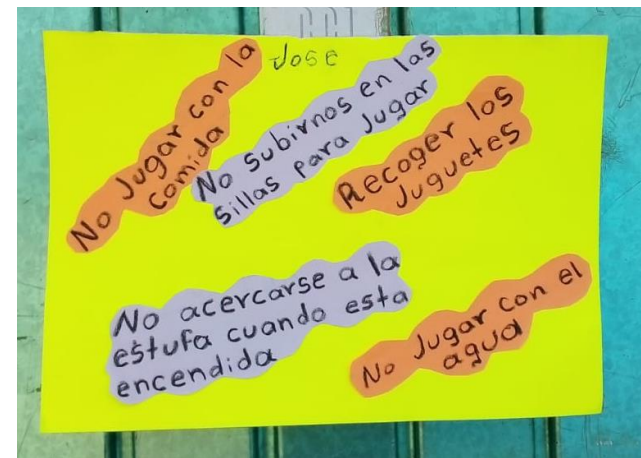 Jose
No Jugar con la
comida
No subirnos en las
Sillas para Jugar
Recoger los
Juguetes
No acercarse a la
estufa cuando esta
encendida
No Jugar con el
agua